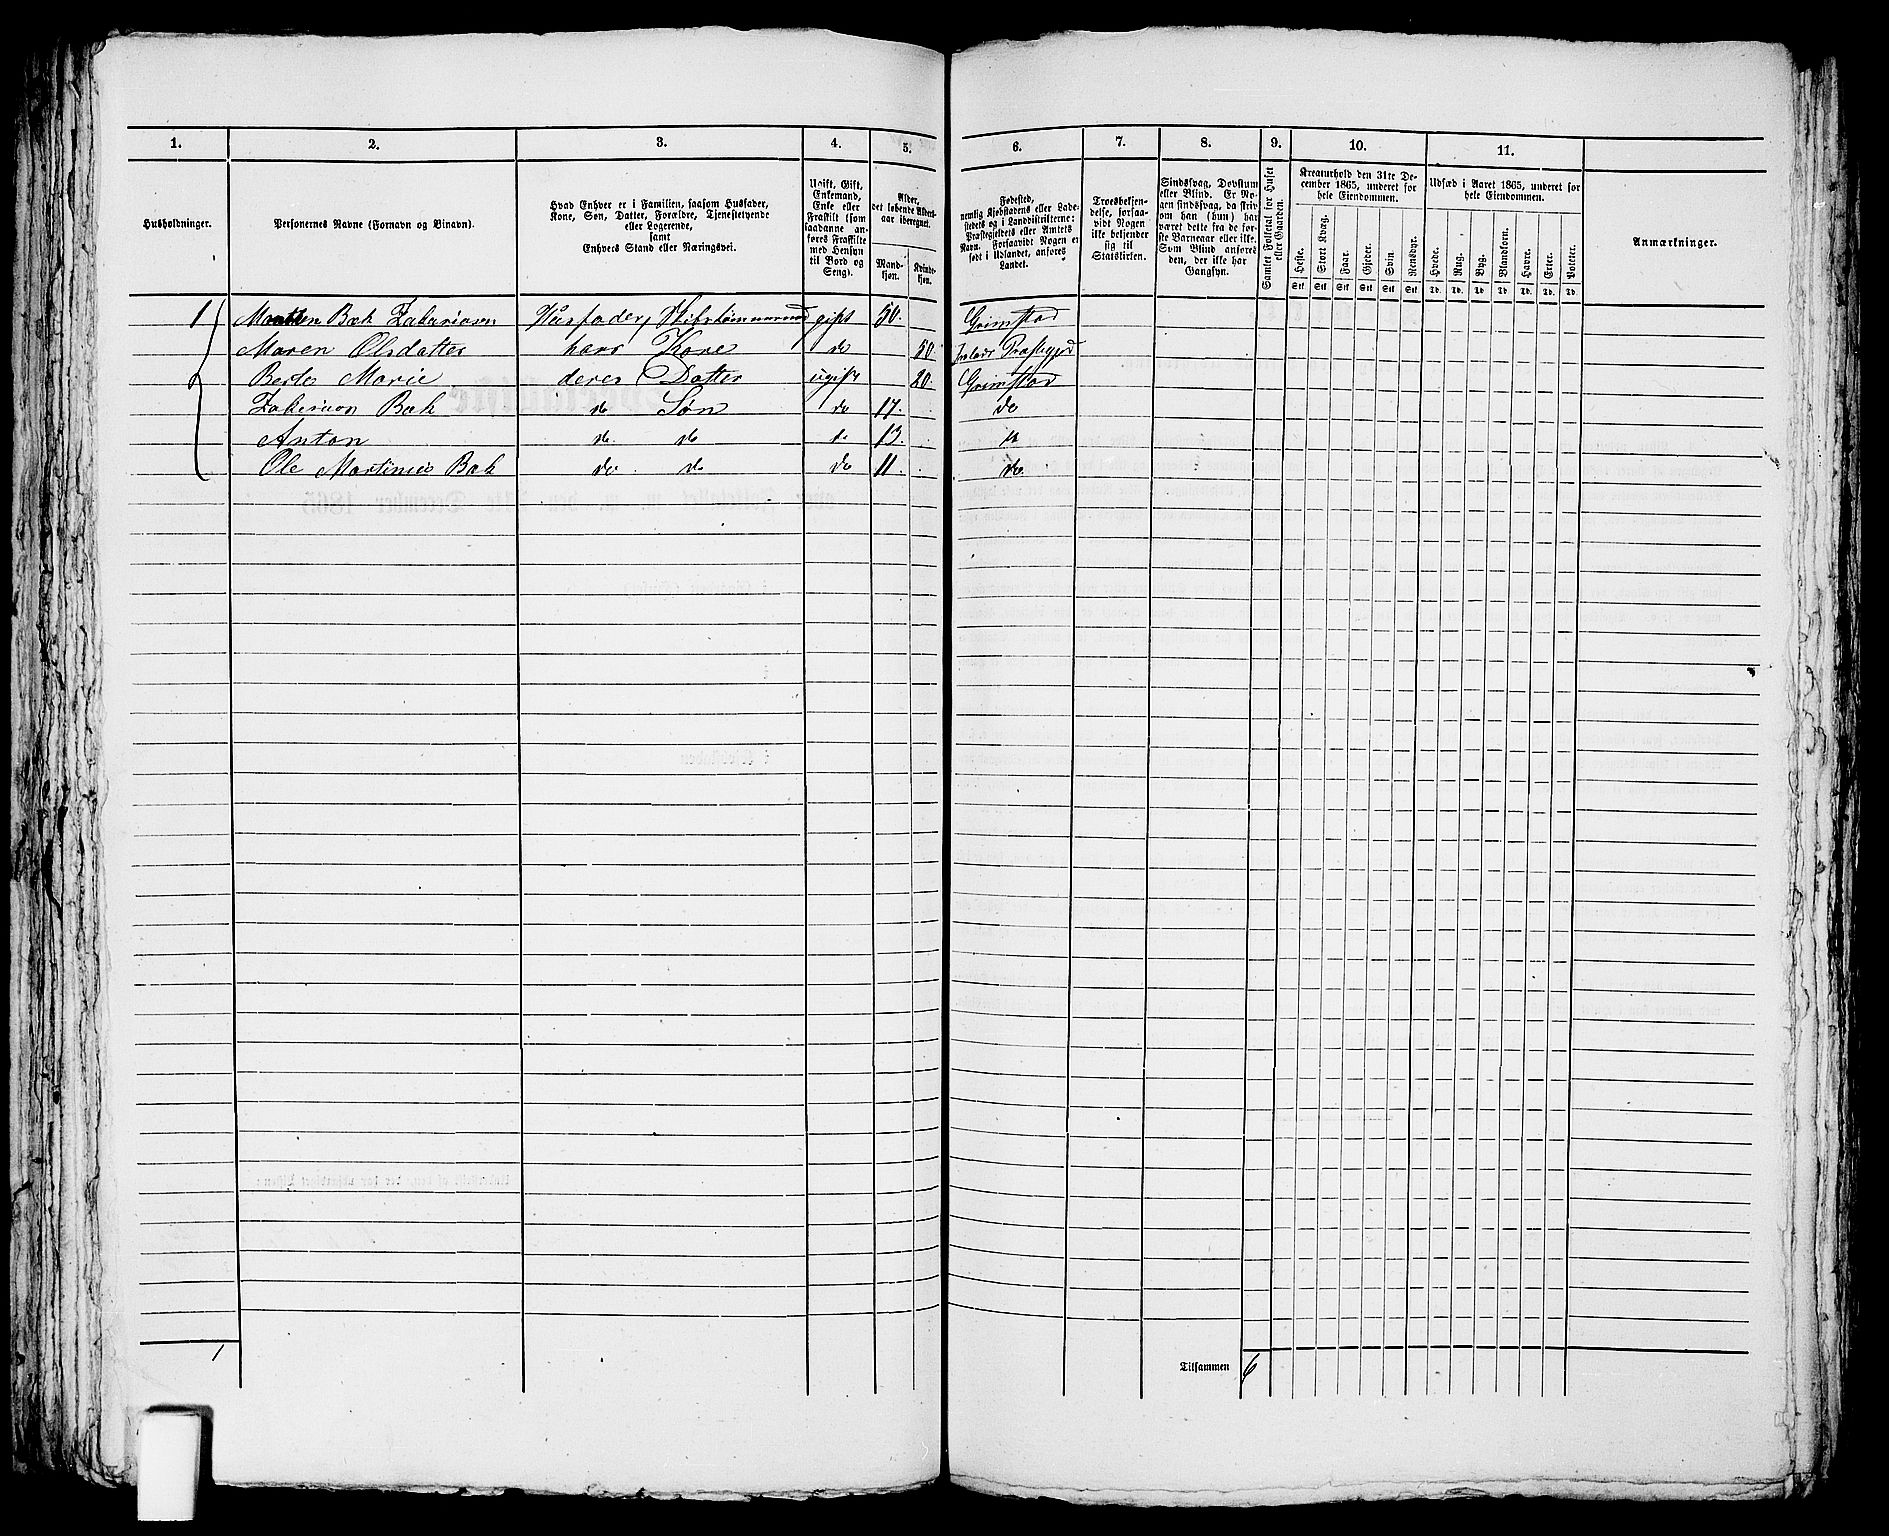 1. 2. 3. 4. 5. 6. 7. 8. 9. 10. 11.
Husholdninger.
Personernes Navne (Fornavn og Binavn).
Hvad Enhver er i Familien, saasom Husfader,
Kone, Søn, Datter, Forældre, Tjenestetyende
eller Logerende,
samt
Enhvers Stand eller Næringsvei.
Ugift, Gift,
Enkemand,
Enke eller
Fraskilt (som
saadanne an-
føres Fraskilte
med Hensyn
til Bord og
Seng).
Alder,
det løbende Alders-
aar iberegnet.
Mand-
kjøn.
Kvinde-
kjøn.
Fødested,
nemlig Kjøbstadens eller Lade-
stedets og i Landdistrikterne:
Præstegjeldets eller Amtets
Navn. Forsaavidt Nogen er
født i Udlandet, anføres
Landet.
Troesbekjen-
delse, forsaa-
vidt Nogen
ikke bekjender
sig til
Statskirken.
Sindssvag, Døvstum
eller Blind. Er No-
gen sindssvag, da skriv
om han (hun) har
været dette fra de før-
ste Barneaar eller ikke.
Som Blind anføres
den, der ikke har
Gangsyn.
Samlet Folketal for Huset
eller Gaarden.
Kreaturhold den 31te De-
cember 1865, underet for
hele Eiendommen.
Heste. Stort Kvæg. Faar. Gjeder. Svin. Rensdyr.
Stk Stk Stk Stk Stk Stk
Udsæd i Aaret 1865, underet for
hele Eiendommen.
Hvede. Rug. Byg. Blandkorn. Havre. Erter. Poteter.
Td. Td. Td. Td. Td. Td. Td.
Anmærkninger.
1 Morten Bæk Zakariasen Husfader, Skibstømmermand gift 50. Grimstad
Maren Olsdatter hans Kone do 50. Præstegjed
Berte Marie deres Datter ugift 20. Grimstad
Zakarias Bæk do Søn do 17. do
Anton do. do do 13. do
Ole Martinius Bæk do. do do 11. do
1
Tilsammen 6